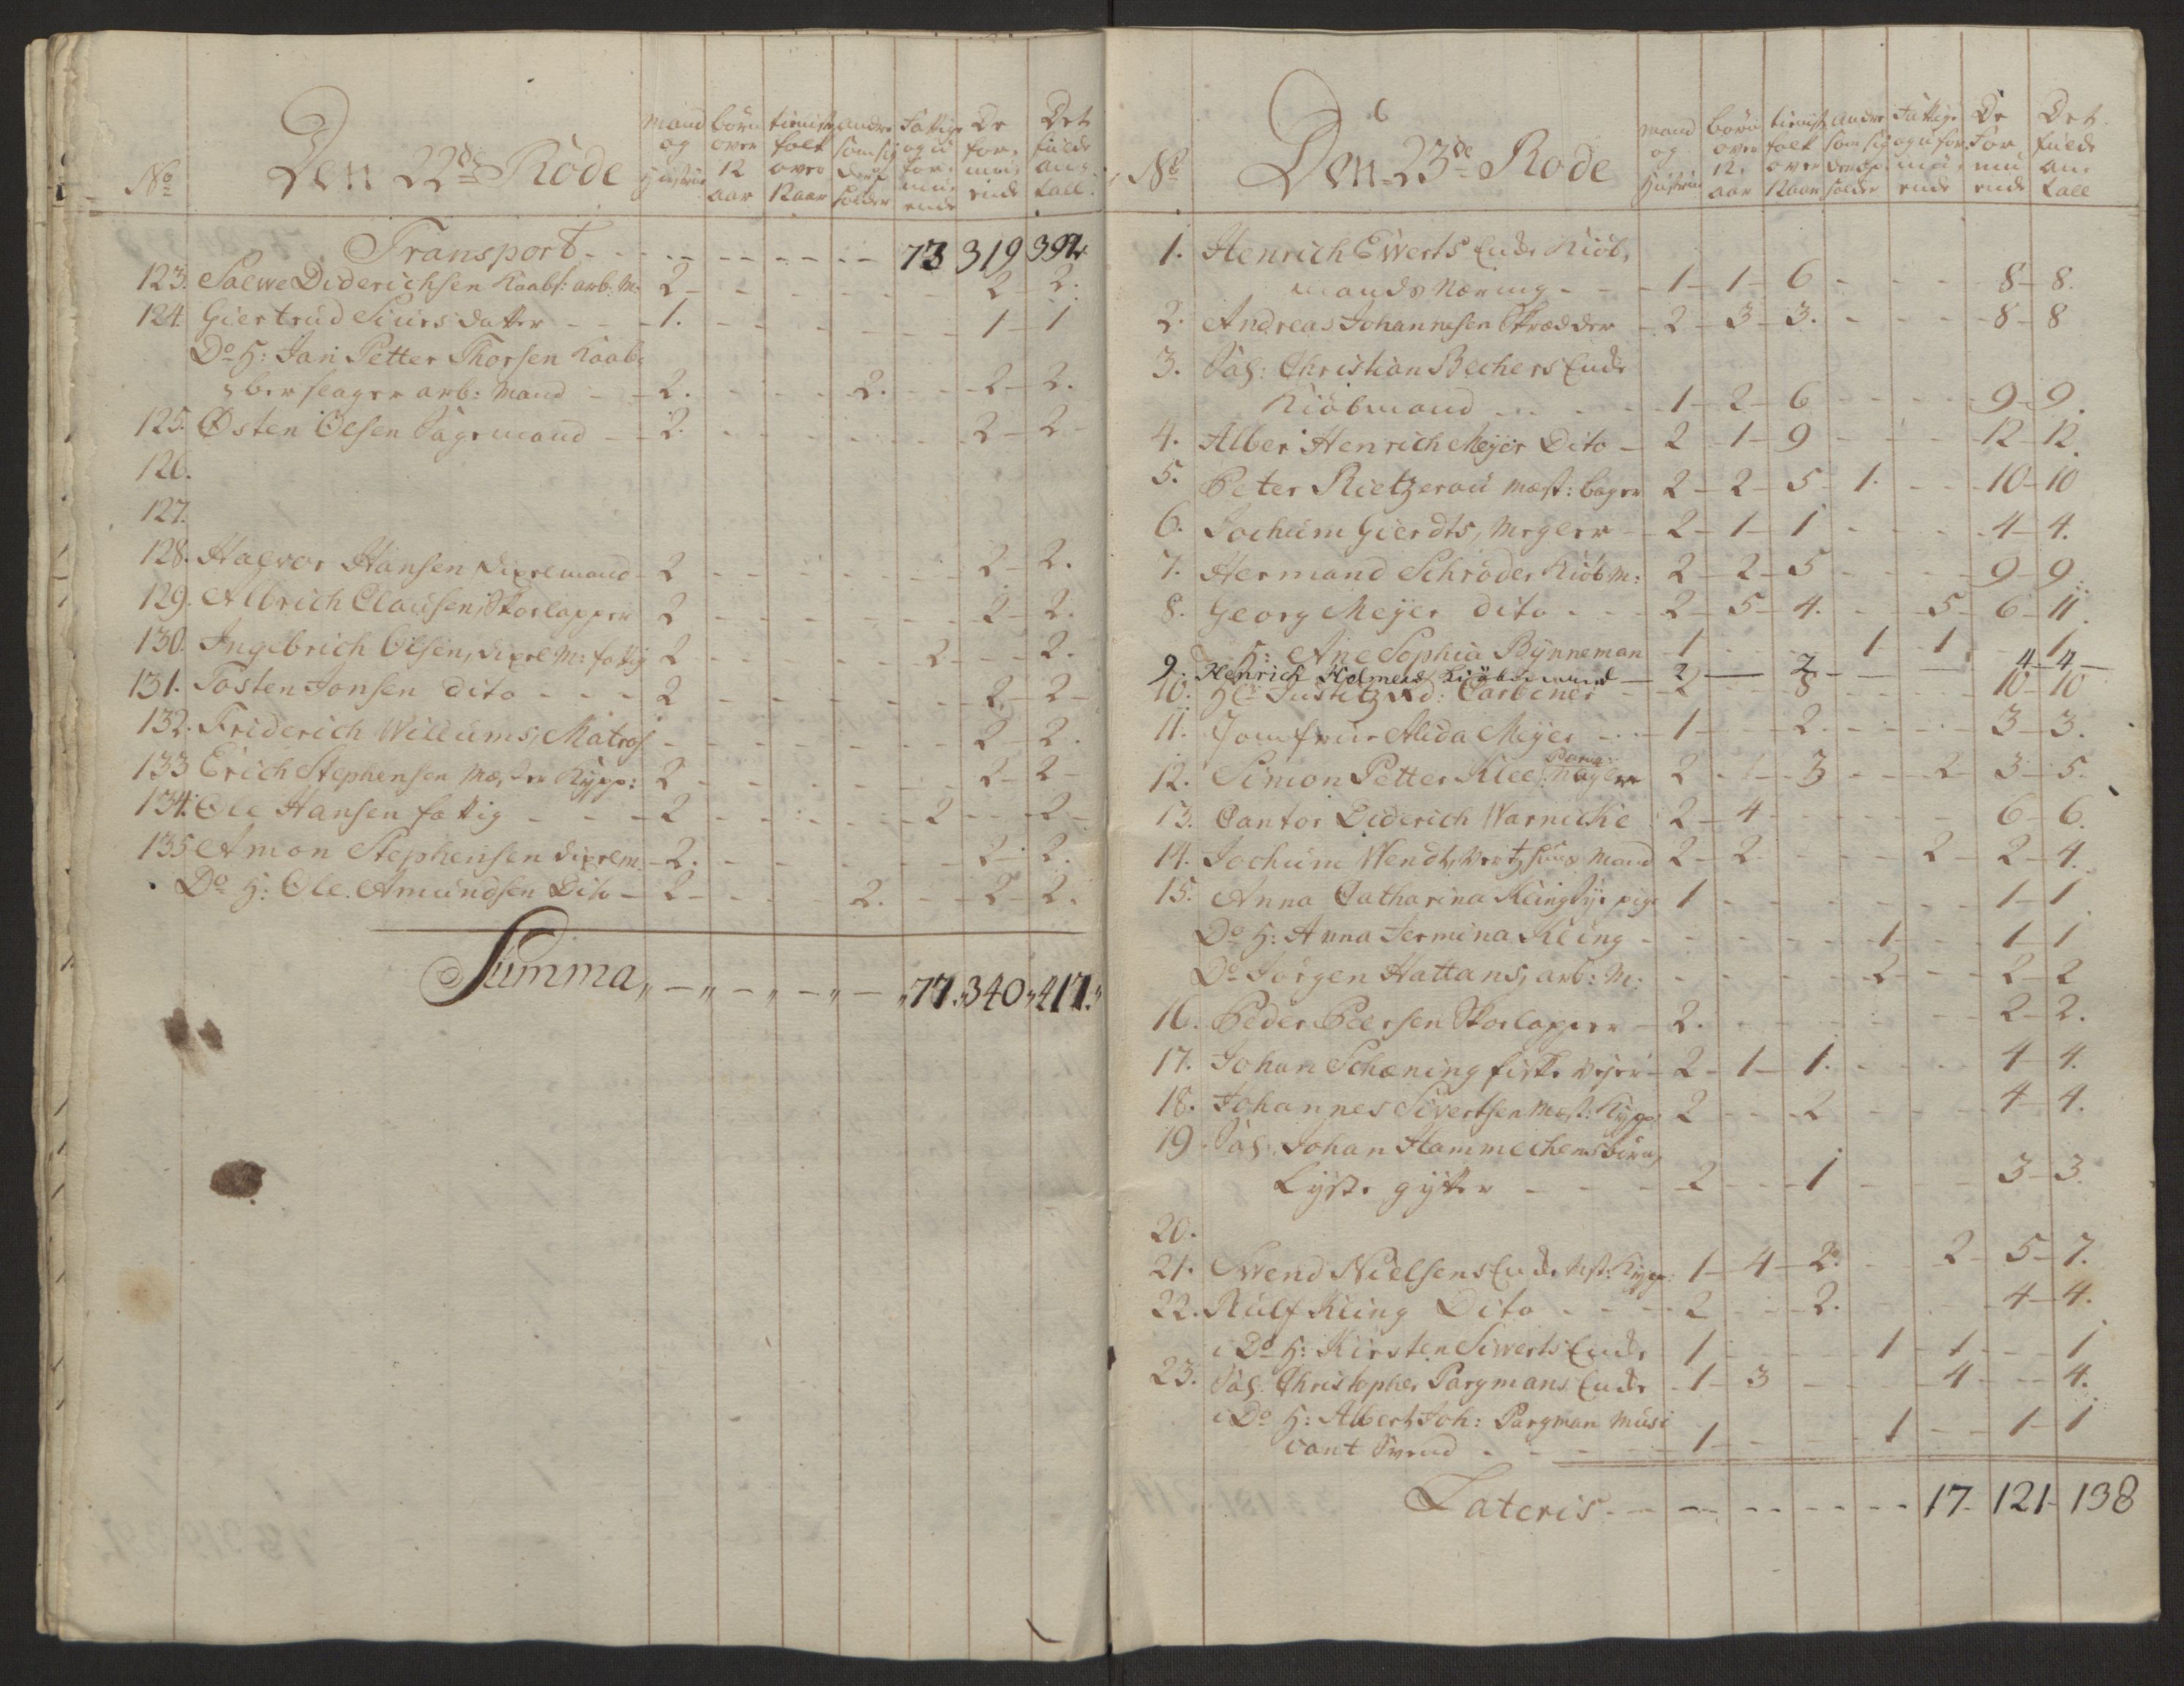 No
Den 22de Rode
mand og Hustrue
börn over 12 aar
tienist folk over 12 aar
andre som sig der op holder
Fattige og u formuende
De formuende
Det fulde antall.
Transport 73 319 392
123. Salwe Diderichsen Kaabs: arb: M: 2 - 2 - 2.
124. Giertrud Siurs datter 1. - 1 - 1
Do H: Jan Petter Thorsen Kaab-
berslager arb: Mand 2. - 2. - 2 - 2.
125. Østen Olsen Sagemand 2. - 2 - 2
126.
127.
128. Halvor Hansen, dixelmand 2 - 2 - 2.
129. Albrich Clausen, Skolapper 2 - 2 - 2.
130. Ingebrich Olsen, dixel M: fattig 2 - 2 - 2.
131. Tosten Jonsen dito 2 - 2 - 2
132. Friderich Willums, Matros - 2 - 2.
133 Erich Stephensen Mester Kypp: 2 - 2 - 2
134. Ole Hansen fattig 2 - 2 - 2
135 Amon Stephensen dixelm. 2. - 2 - 2.
Do H: Ole Amundsen Dito 2 - 2. - 2 - 2.
Summa 77. 340 417.
No
Den 23de Rode
mand og Hustrue
börn over 12 aar
tienist folk over 12 aar
andre som sig der op holder
Fattige og u formuende
De formuende
Det fulde antall
1. Henrich Ewerts Enke Kiöb-
mands Næring 1 - 1 - 6 - 8 - 8.
2. Andreas Johannesen Skrædder 2 - 3 - 3. - 8 - 8
3. Sal: Christian Bechers Enke
Kiöbmand 1 - 2 - 6 - 9 - 9.
4. Alber Henrich Meyer Dito 2 - 1 - 9 - 12 - 12.
5. Peter Rietzerau mest: bager 2 - 2 - 5 - 1. - 10 - 10
6. Jochum Gierdts, Megler 2 - 1 - 1 - 4 - 4.
7. Hermand Schröder Kiöb M: 2 - 2 - 5 - 9 - 9
8. Georg Meyer dito 2 - 5 - 4. - 5 - 6 - 11.
H: Ane Sophia Bynneman 1 - 1 - 1 - 1
9. Henrich Holmers Kiöbmand 2 - 2 - 4 - 4
10. Hr Justitz Rd: Carbiner 2 - 8 - 10 - 10
11. Jomfrue Alida Meyer 1 - 2. - 3 - 3.
12. Simon Petter Klee 2 - 1 - 3 - 2 - 3 - 5.
13. Cantor Diderich Warnicke 2 - 4 - 6 - 6.
14. Jochum Wendt, Vertshuus Mand 2 - 2 - 2 - 2 - 4.
15. Anna Catharina Kling Sye pige 1 - 1 - 1
Do H: Anna Jermina Kling - 1 - 1 - 1
Do Jörgen Hattans, arb: M: - 2 - 2 - 2
16. Peder Peersen Skolapper 2. - 2 - 2.
17. Johan Schæning fiske Vejer 2 - 1 - 1. - 4 - 4.
18. Johannes Sivertsen Mest: Kypp: 2 - 2 - 4 - 4.
19 Sal: Johan Hammechens börn,
Lyste gytter 2 - 1 - 3 - 3.
20.
21. Swend Nielsens Enke Mst: Kypp: 1 - 4 - 2. - 2 - 5 - 7.
22. Rulf Kling Dito 2 - 2. - 4 - 4.
i Do H: Kirsten Siwerts Enke 1 - 1 - 1 - 1
23. Sal: Christopher Pargmans Enke 1 - 3 - 4 - 4.
i Do H: Albert Joh: Pargman Musi
cant Svend 1 - 1 - 1 - 1
Lateris 17 - 121 - 138